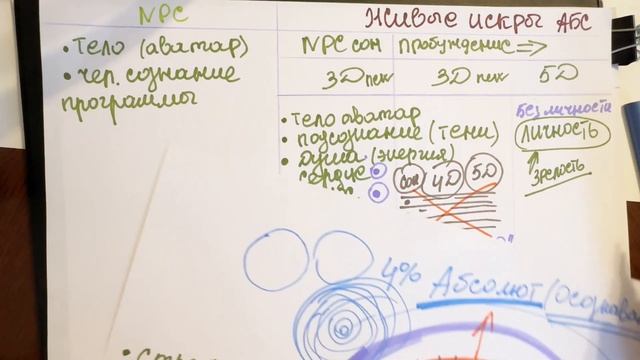 NPC
Живые искры АБС
• Тело (аватар)
• чел. сознание
программы
NPC сон
пробуждение ⇒
3D
3D
5D
• Тело аватар
• подсознание (тени)
• душа (энергия)
сердце
4D
5D
Без личности
личность
↑
Зрелость
4% Абсолют